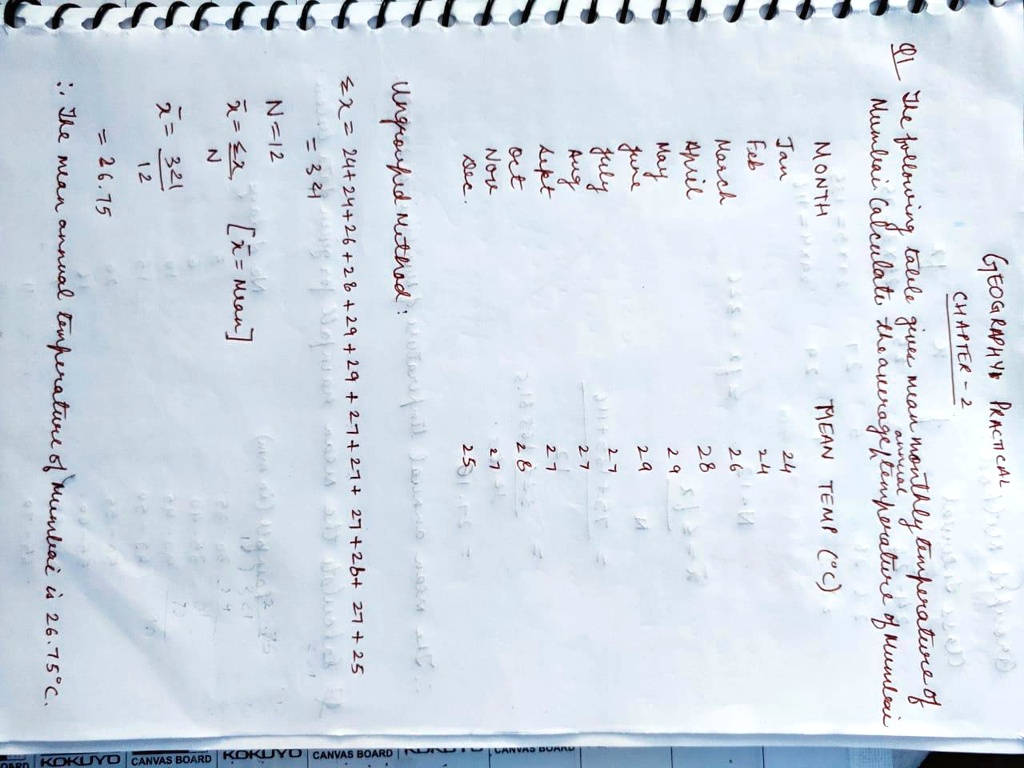 GEOGRAPHY PRACTICAL
CHAPTER - 2
Q1 The following table gives mean monthly temperature of
Mumbai Calculate the average annual temperature of Mumbai
MONTH MEAN TEMP (°C)
Jan 24
Feb 24
March 26
April 28
May 29
June 29
July 27
Aug 27
Sept 27
Oct 28
Nov 27
Dec. 25
Ungrouped Method:
Σx = 24+24+26+28+29+29+27+27+27+28+27+25
= 321
N=12
x̄ = Σx/N [x̄ = Mean]
x̄ = 321/12
= 26.75
∴ The mean annual temperature of Mumbai is 26.75°C.
KOKUYO CANVAS BOARD KOKUYO CANVAS BOARD KOKUYO CANVAS BOARD